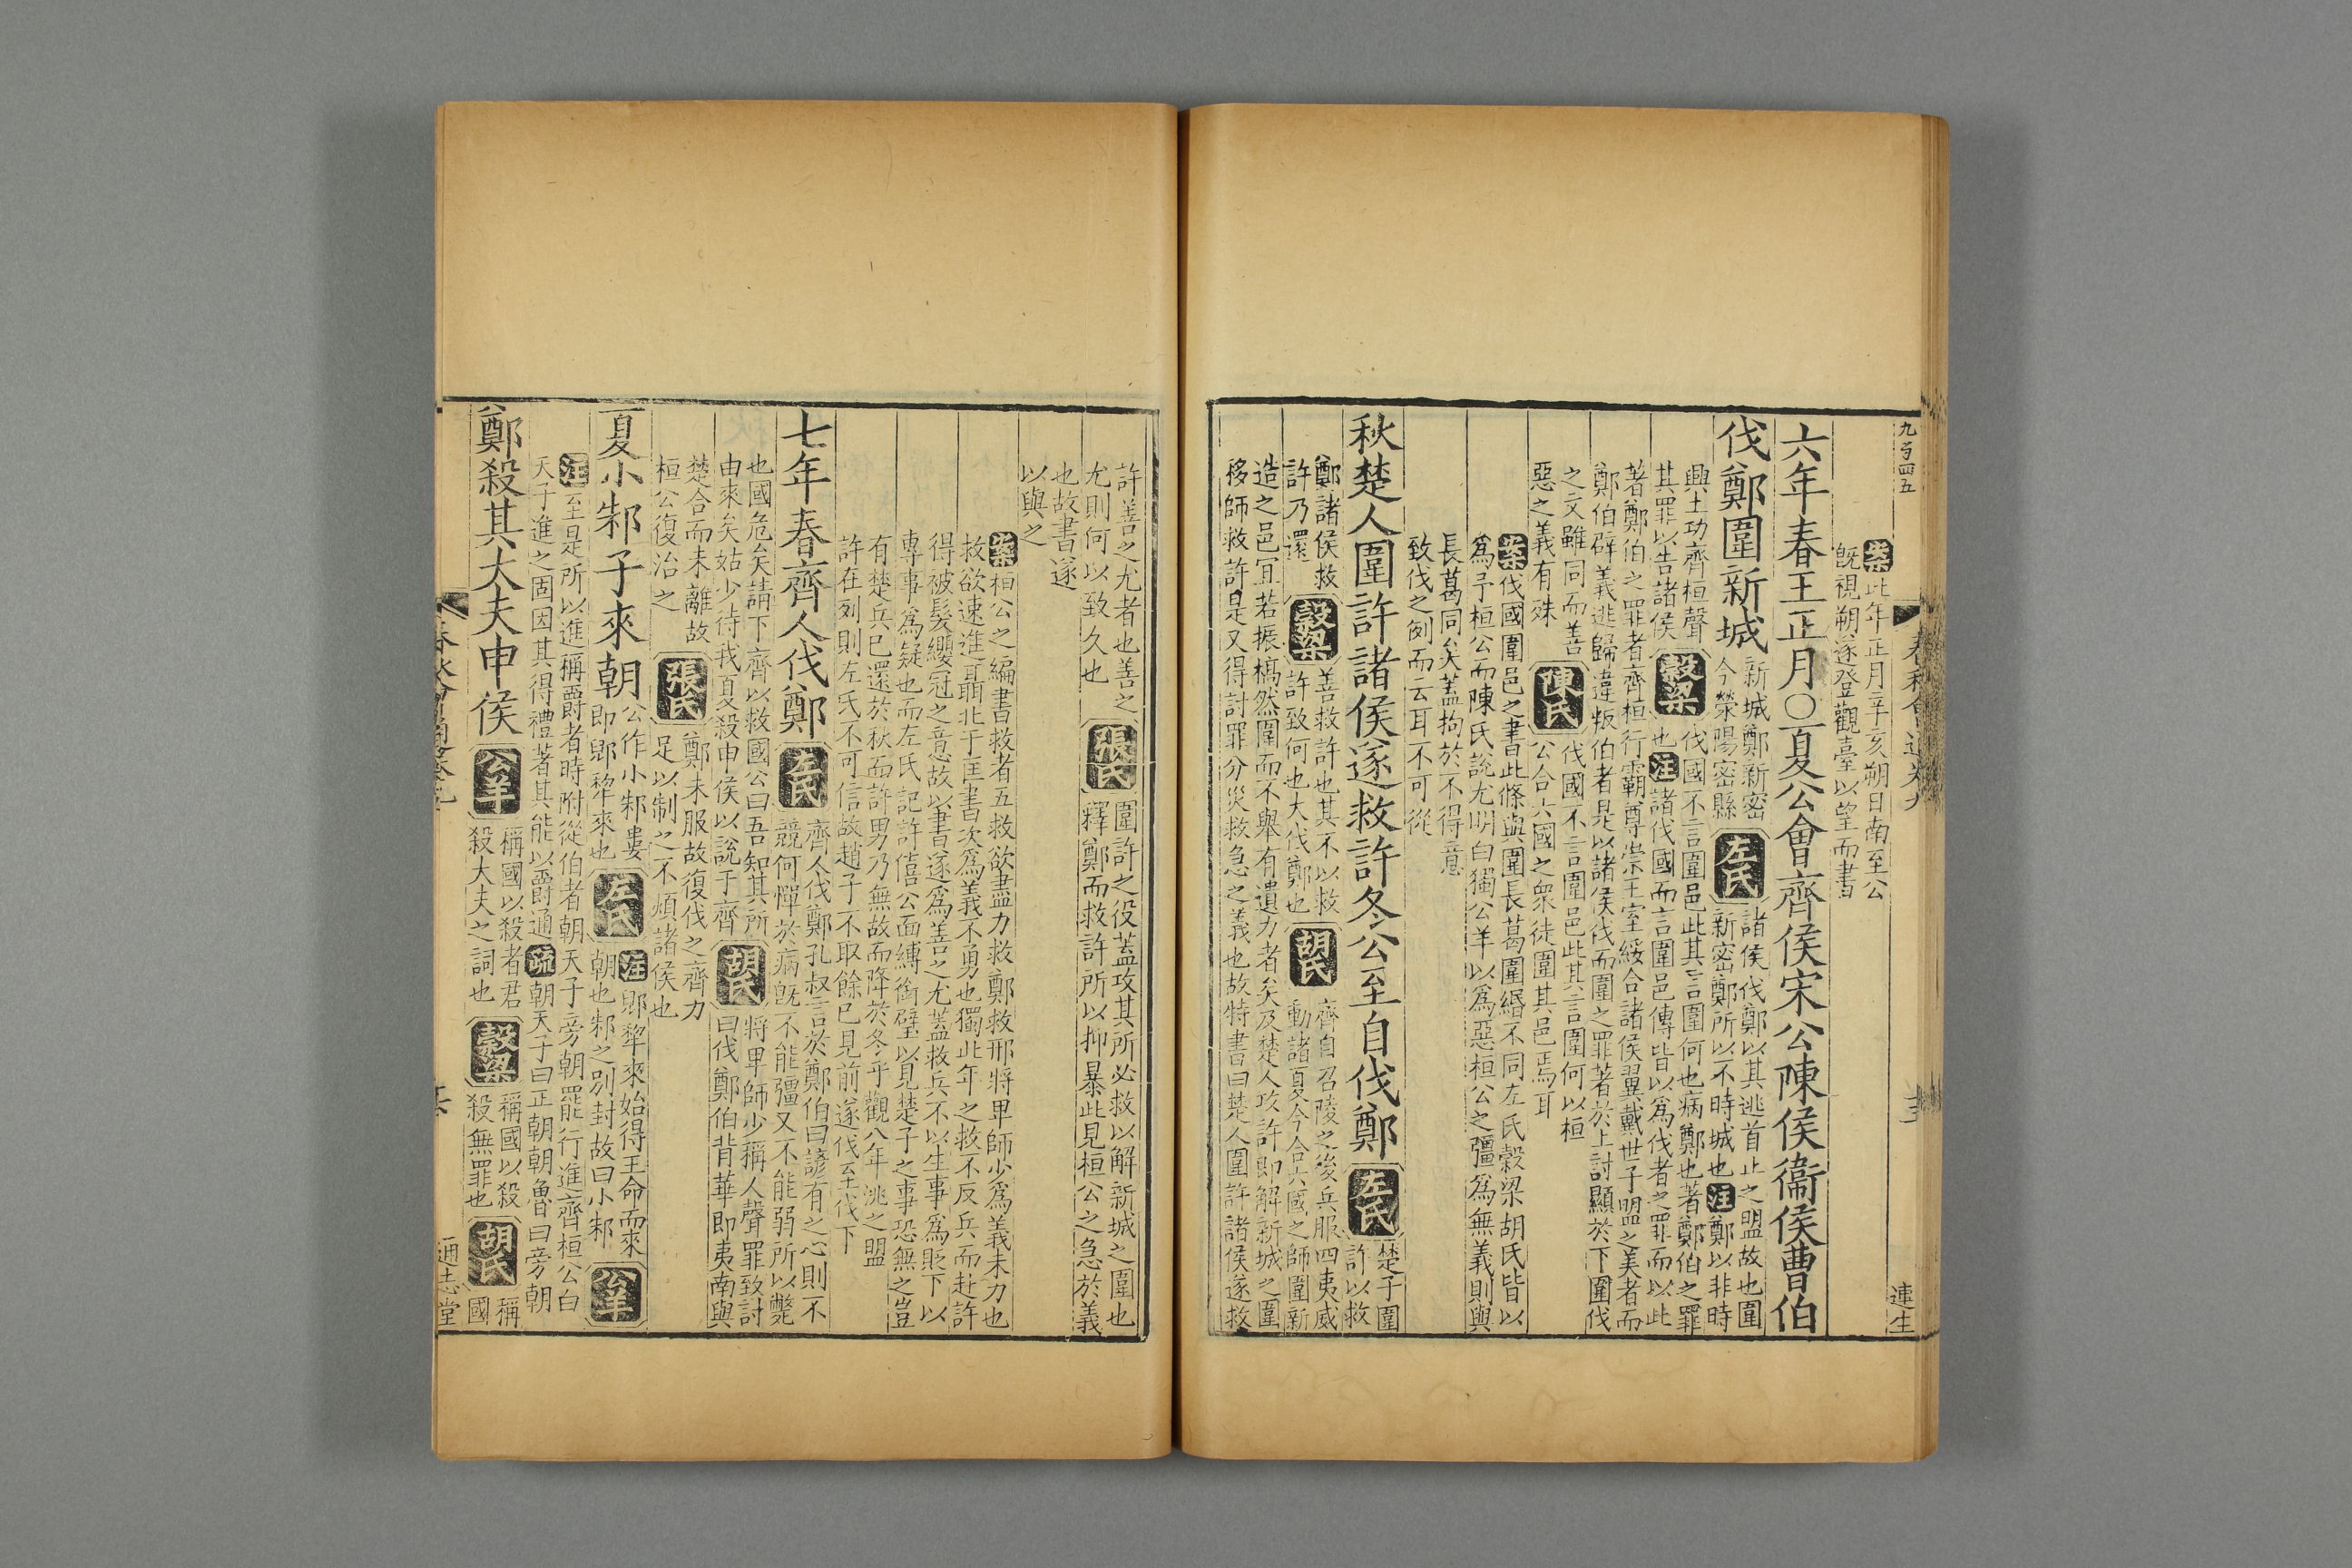 九百四五
春秋會通卷九
連生
案此年正月辛亥朔日南至公
旣視朔遂登觀臺以望而書
六年春王正月〇夏公會齊侯宋公陳侯衞侯曹伯
伐鄭圍新城
新城鄭新密
今滎陽密縣
左氏
諸侯伐鄭以其逃首止之盟故也圍
新密鄭所以不時城也注鄭以非時
興土功齊桓聲
其罪以告諸侯
穀梁
伐國不言圍邑此其言圍何也病鄭也著鄭伯之罪
也注諸伐國而言圍邑傳皆以爲伐者之罪而以此
著鄭伯之罪者齊桓行霸尊崇王室綏合諸侯翼戴世子盟之美者而
鄭伯辟義逃歸違叛伯者是以諸侯伐而圍之罪著於上討顯於下圍伐
之文雖同而善
惡之義有殊
陳氏
伐國不言圍邑此其言圍何以桓
公合六國之衆徒圍其邑焉耳
案伐國圍邑之書此條與圍長葛圍緡不同左氏穀梁胡氏皆以
爲予桓公而陳氏說尤明白獨公羊以爲惡桓公之彊爲無義則與
長葛同矣蓋拘於不得意
致伐之例而云耳不可從
秋楚人圍許諸侯遂救許冬公至自伐鄭
左氏
楚子圍
許以救
鄭諸侯救
許乃還
穀梁
善救許也其不以救
許致何也大伐鄭也
胡氏
齊自召陵之後兵服四夷威
動諸夏今合六國之師圍新
造之邑宜若振槁然圍而不舉有遺力者矣及楚人攻許即解新城之圍
移師救許是又得討罪分災救急之義也故特書曰楚人圍許諸侯遂救
許善之尤者也善之
尤則何以致久也
張氏
圍許之役蓋攻其所必救以解新城之圍也
釋鄭而救許所以抑暴此見桓公之急於義
也故書遂
以與之
案桓公之編書救者五救欲盡力救鄭救邢將卑師少爲義未力也
救欲速進聶北于匡書次爲義不勇也獨此年之救不反兵而赴許
得被髮纓冠之意故以書遂爲善之尤蓋救兵不以生事爲貶下以
專事爲疑也而左氏記許僖公面縛銜璧以見楚子之事恐無之豈
有楚兵已還於秋而許男乃無故而降於冬乎觀八年洮之盟
許在列則左氏不可信故趙子不取餘已見前遂伐至伐下
七年春齊人伐鄭
左氏
齊人伐鄭孔叔言於鄭伯曰諺有之心則不
競何憚於病旣不能彊又不能弱所以斃
也國危矣請下齊以救國公曰吾知其所
由來矣姑少待我夏殺申侯以說于齊
胡氏
將卑師少稱人聲罪致討
曰伐鄭伯背華即夷南與
楚合而未離故
桓公復治之
張氏
鄭未服故復伐之齊力
足以制之不煩諸侯也
夏小邾子來朝
公作小邾婁
即郳犂來也
左氏
注郳犂來始得王命而來
朝也邾之別封故曰小邾
公羊
注至是所以進稱爵者時附從伯者朝天子旁朝罷行進齊桓公白
天子進之固因其得禮著其能以爵通疏朝天子曰正朝朝魯曰旁朝
鄭殺其大夫申侯
公羊
稱國以殺者君
殺大夫之詞也
穀梁
稱國以殺
殺無罪也
胡氏
稱
國
通志堂